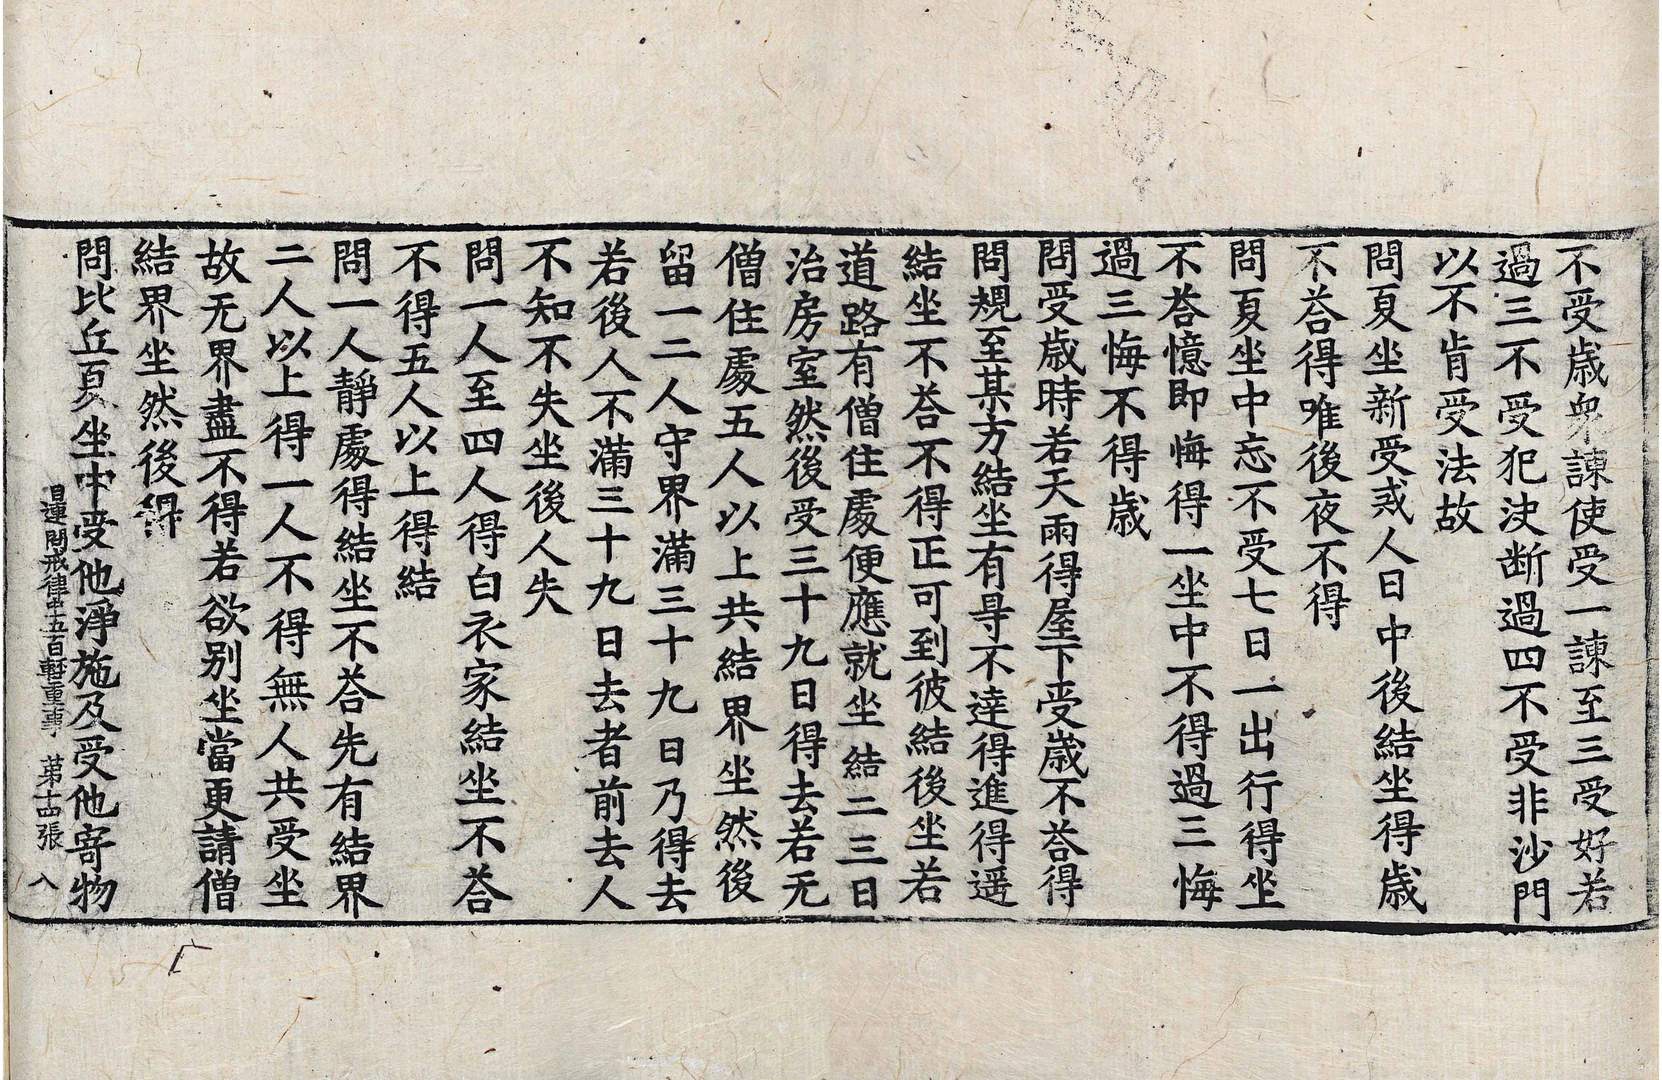 不受歳衆諫使受一諫至三受好若
過三不受犯決断過四不受非沙門
以不肯受法故
問夏坐新受戒人日中後結坐得歳
不荅得唯後夜不得
問夏坐中忘不受七日一出行得坐
不荅憶即悔得一坐中不得過三悔
過三悔不得歳
問受歳時若天雨得屋下受歳不荅得
問規至某方結坐有㝵不達得進得遥
結坐不荅不得正可到彼結後坐若
道路有僧住處便應就坐結二三日
治房室然後受三十九日得去若无
僧住處五人以上共結界坐然後
留一二人守界滿三十九日乃得去
若後人不滿三十九日去者前去人
不知不失坐後人失
問一人至四人得白衣家結坐不荅
不得五人以上得結
問一人靜處得結坐不荅先有結界
二人以上得一人不得無人共受坐
故无界盡不得若欲别坐當更請僧
結界坐然後得
問比丘夏坐中受他淨施及受他寄物
目連問戒律中五百輕重事 第十四張 八